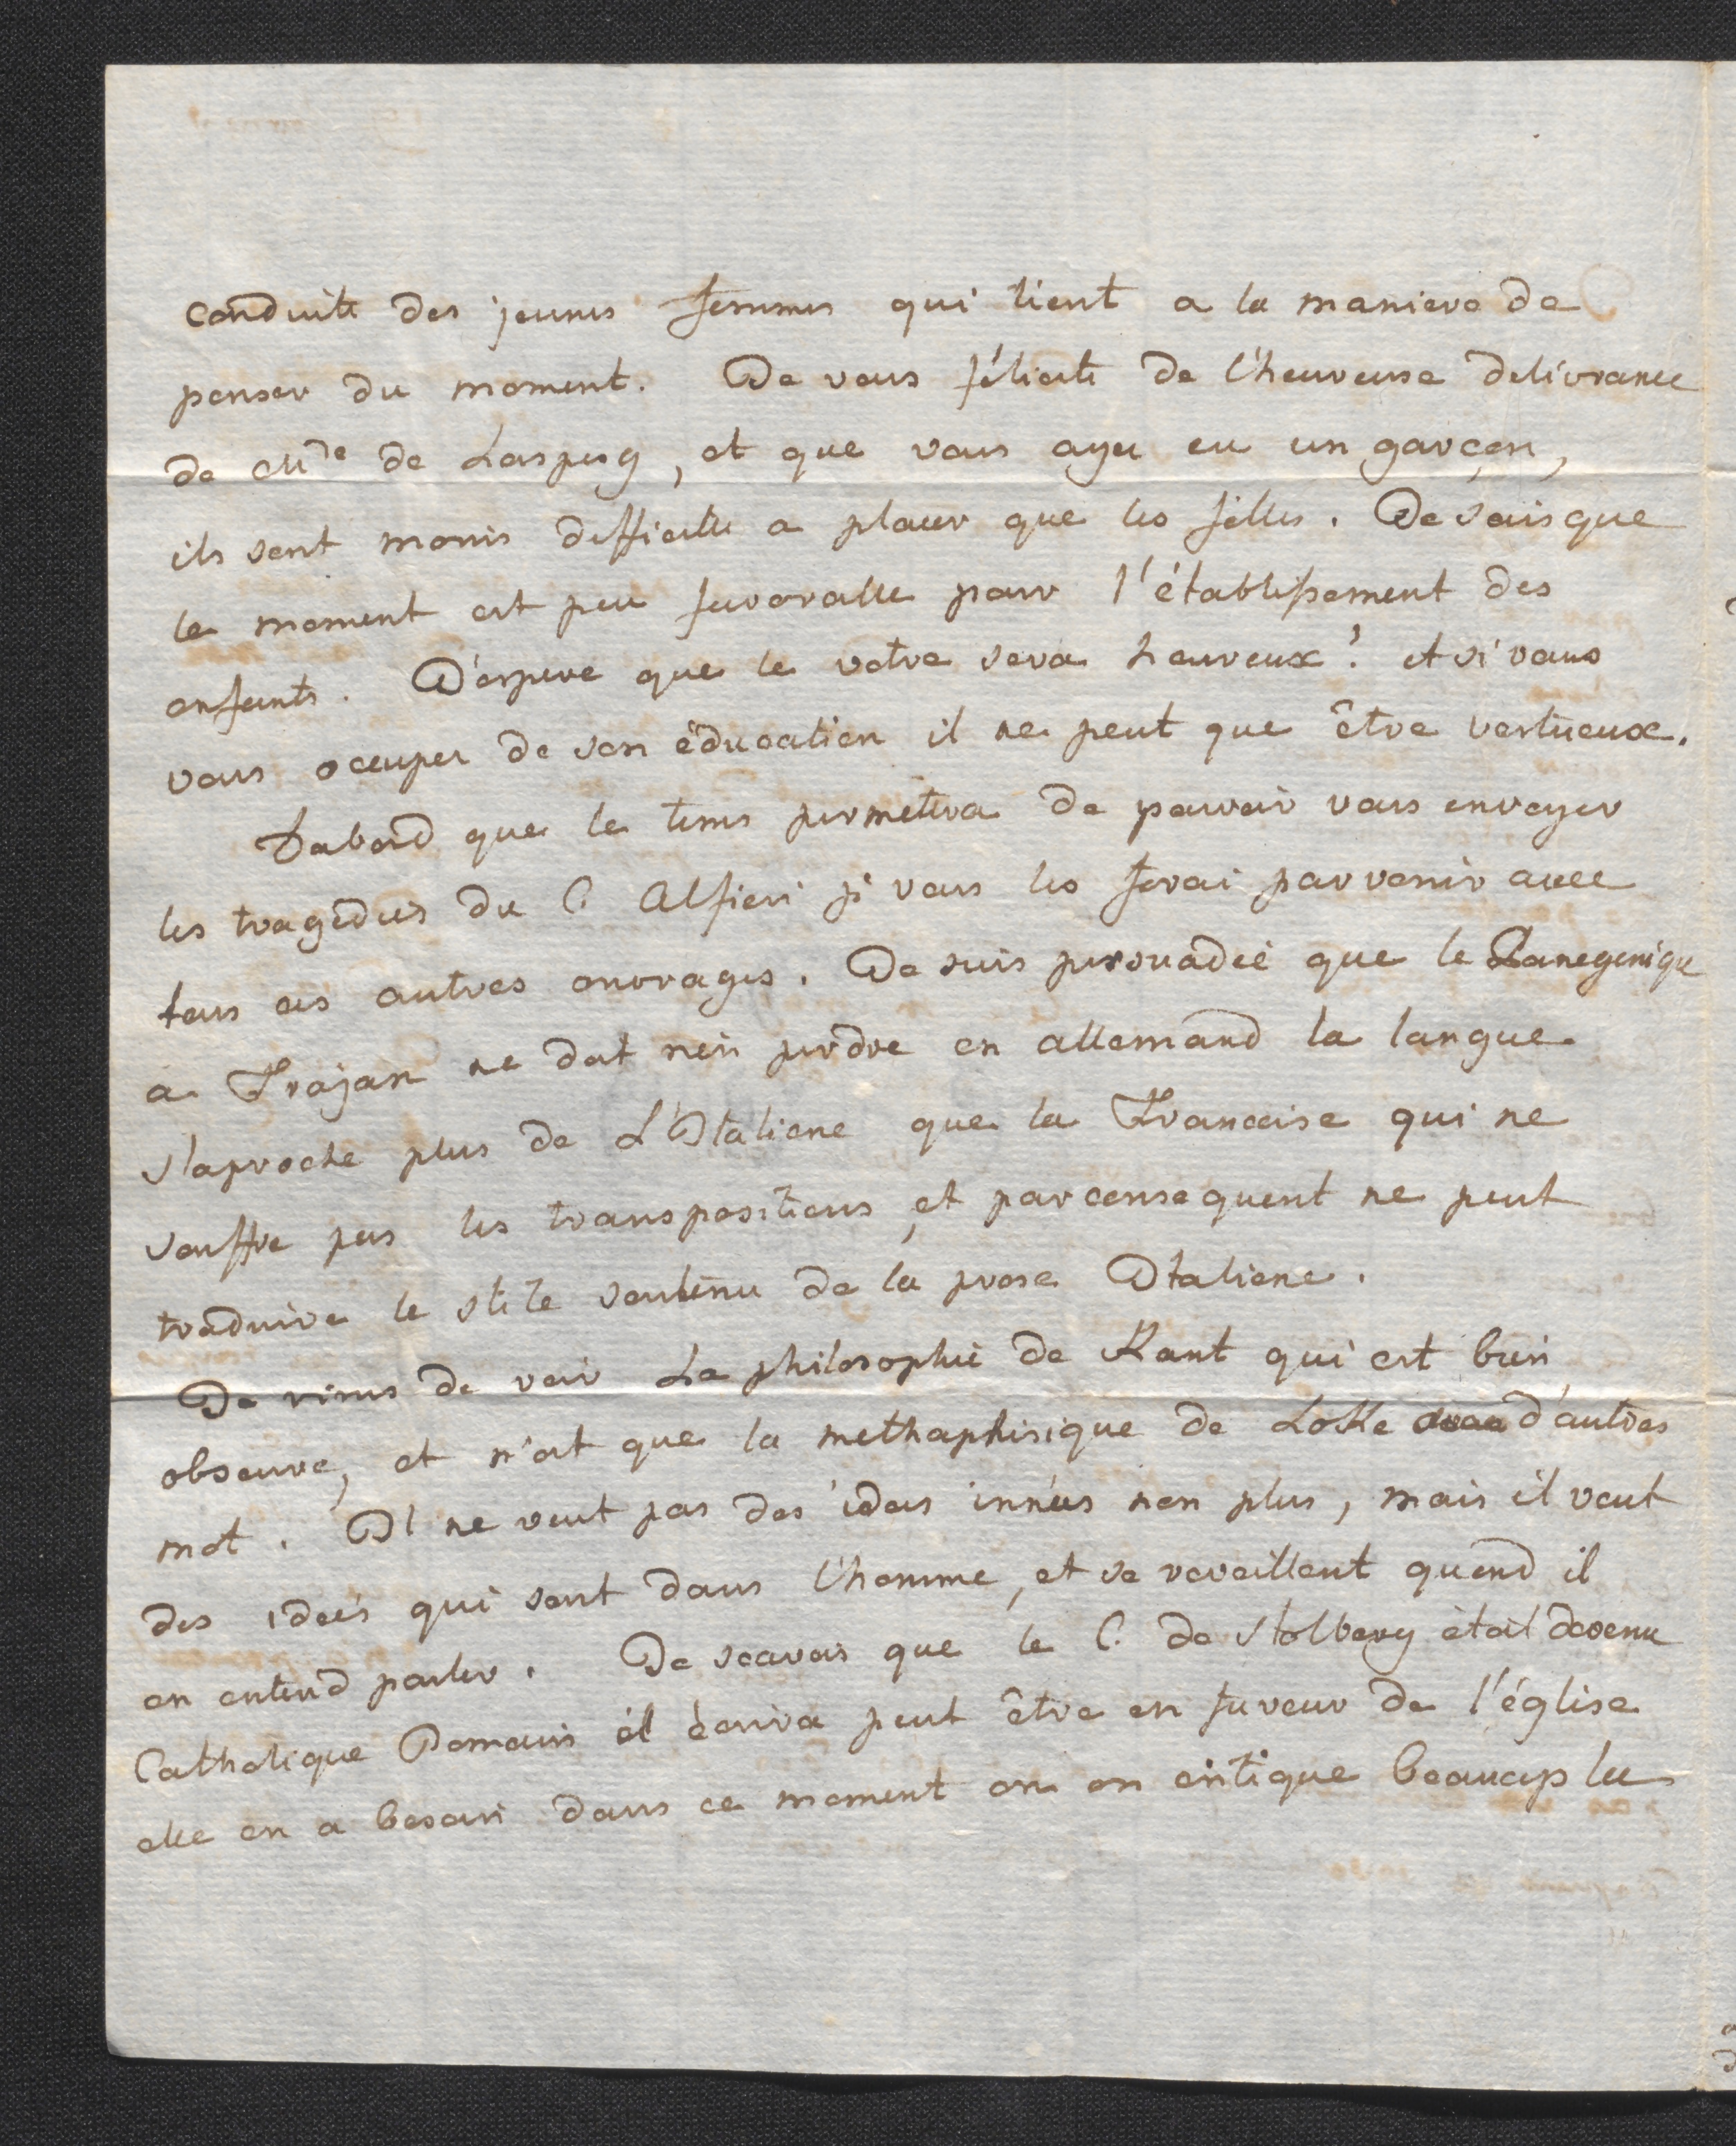 conduite des jeunes femmes qui tient a la maniere de
penser du moment. Je vous félicite de l'heureuse delivrance
de Mde de Laspeg, et que vous ayez eu un garçon,
ils sont moins difficile a placer que les filles. Je sais que
le moment est peu favorable pour l'établissement des
enfants. J'espere que le votre sera heureux! et si vous
vous occuper de son éducation il ne peut que être vertueux.
Dabord que le tems permetera de pouvoir vous envoyer
les tragedies du C. Alfieri je vous les ferai parvenir avec
tous ces autres ouvrages. Je suis persuadeé que le Panegerique
a Trajan ne doit rien perdre en allemand la langue
s'aproche plus de L'Italiene que la Francaise qui ne
souffre pas les transpositions, et parconsequent ne peut
traduire le stile soutenu de la prose Italiene.
Je viens de voir La philosophie de Kant qui est bien
obscure, et n'est que la methaphisique de Lokke d'autres
mot. Il ne veut pas des idees inneés non plus, mais il veut
des ideés qui sont dans l'homme, et se reveillent quend il
en entend parler. Je scavois que le C. de Stolberg étoit devenu
Catholique Romain il écrira peut être en faveur de l'église
elle en a besoin dans ce moment on en critique beaucup les